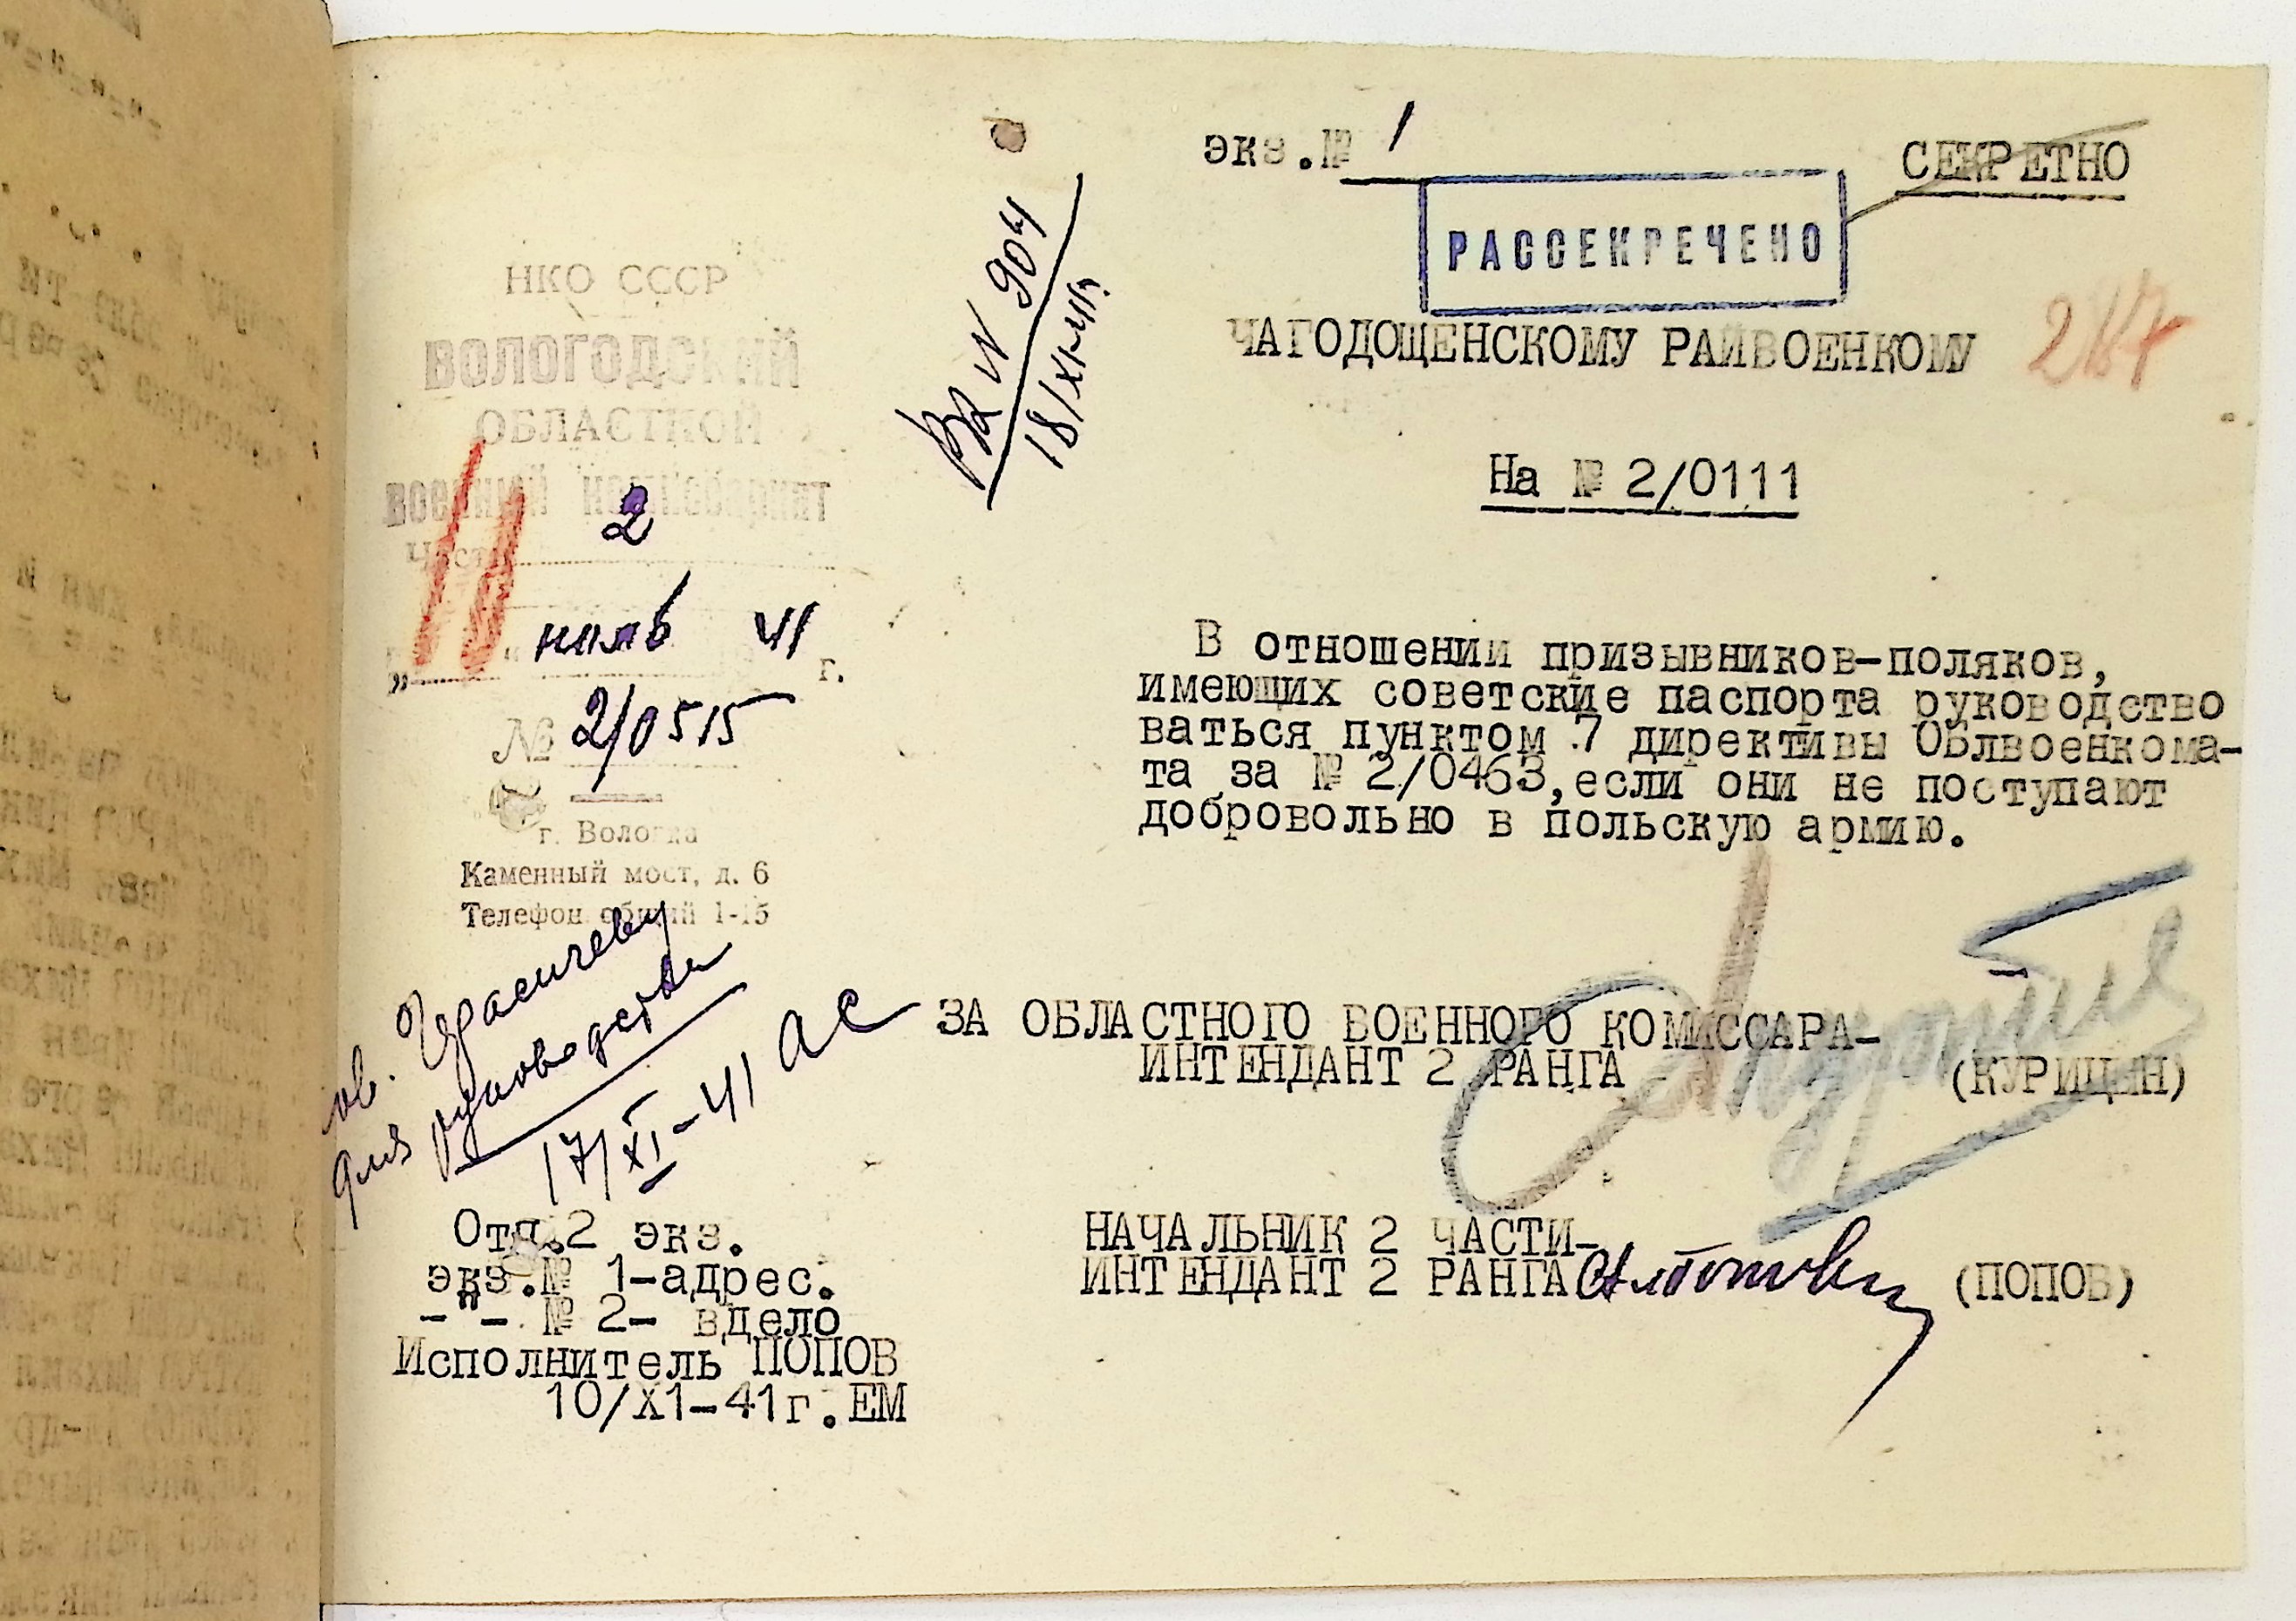 экз.№ 1
СЕКРЕТНО
РАССЕКРЕЧЕНО
Вх N 904
18/XI-41г.
НКО СССР
ВОЛОГОДСКИЙ
ОБЛАСТНОЙ
военный комиссариат
Часть 2
„11“ нояб 41 г.
№ 2/0515
г. Вологда
Каменный мост, д. 6
Телефон общий 1-15
ЧАГОДОЩЕНСКОМУ РАЙВОЕНКОМУ
На № 2/0111
В отношении призывников-поляков,
имеющих советские паспорта руководство
ваться пунктом 7 директивы Облвоенкома-
та за № 2/0463,если они не поступают
добровольно в польскую армию.
ЗА ОБЛАСТНОГО ВОЕННОГО КОМИССАРА-
ИНТЕНДАНТ 2 РАНГА (КУРИЦЫН)
НАЧАЛЬНИК 2 ЧАСТИ-
ИНТЕНДАНТ 2 РАНГА (ПОПОВ)
для руководства
17/XI-41
Отп.2 экз.
экз.№ 1-адрес.
-"- № 2- вдело
Исполнитель ПОПОВ
10/X1-41г.ЕМ